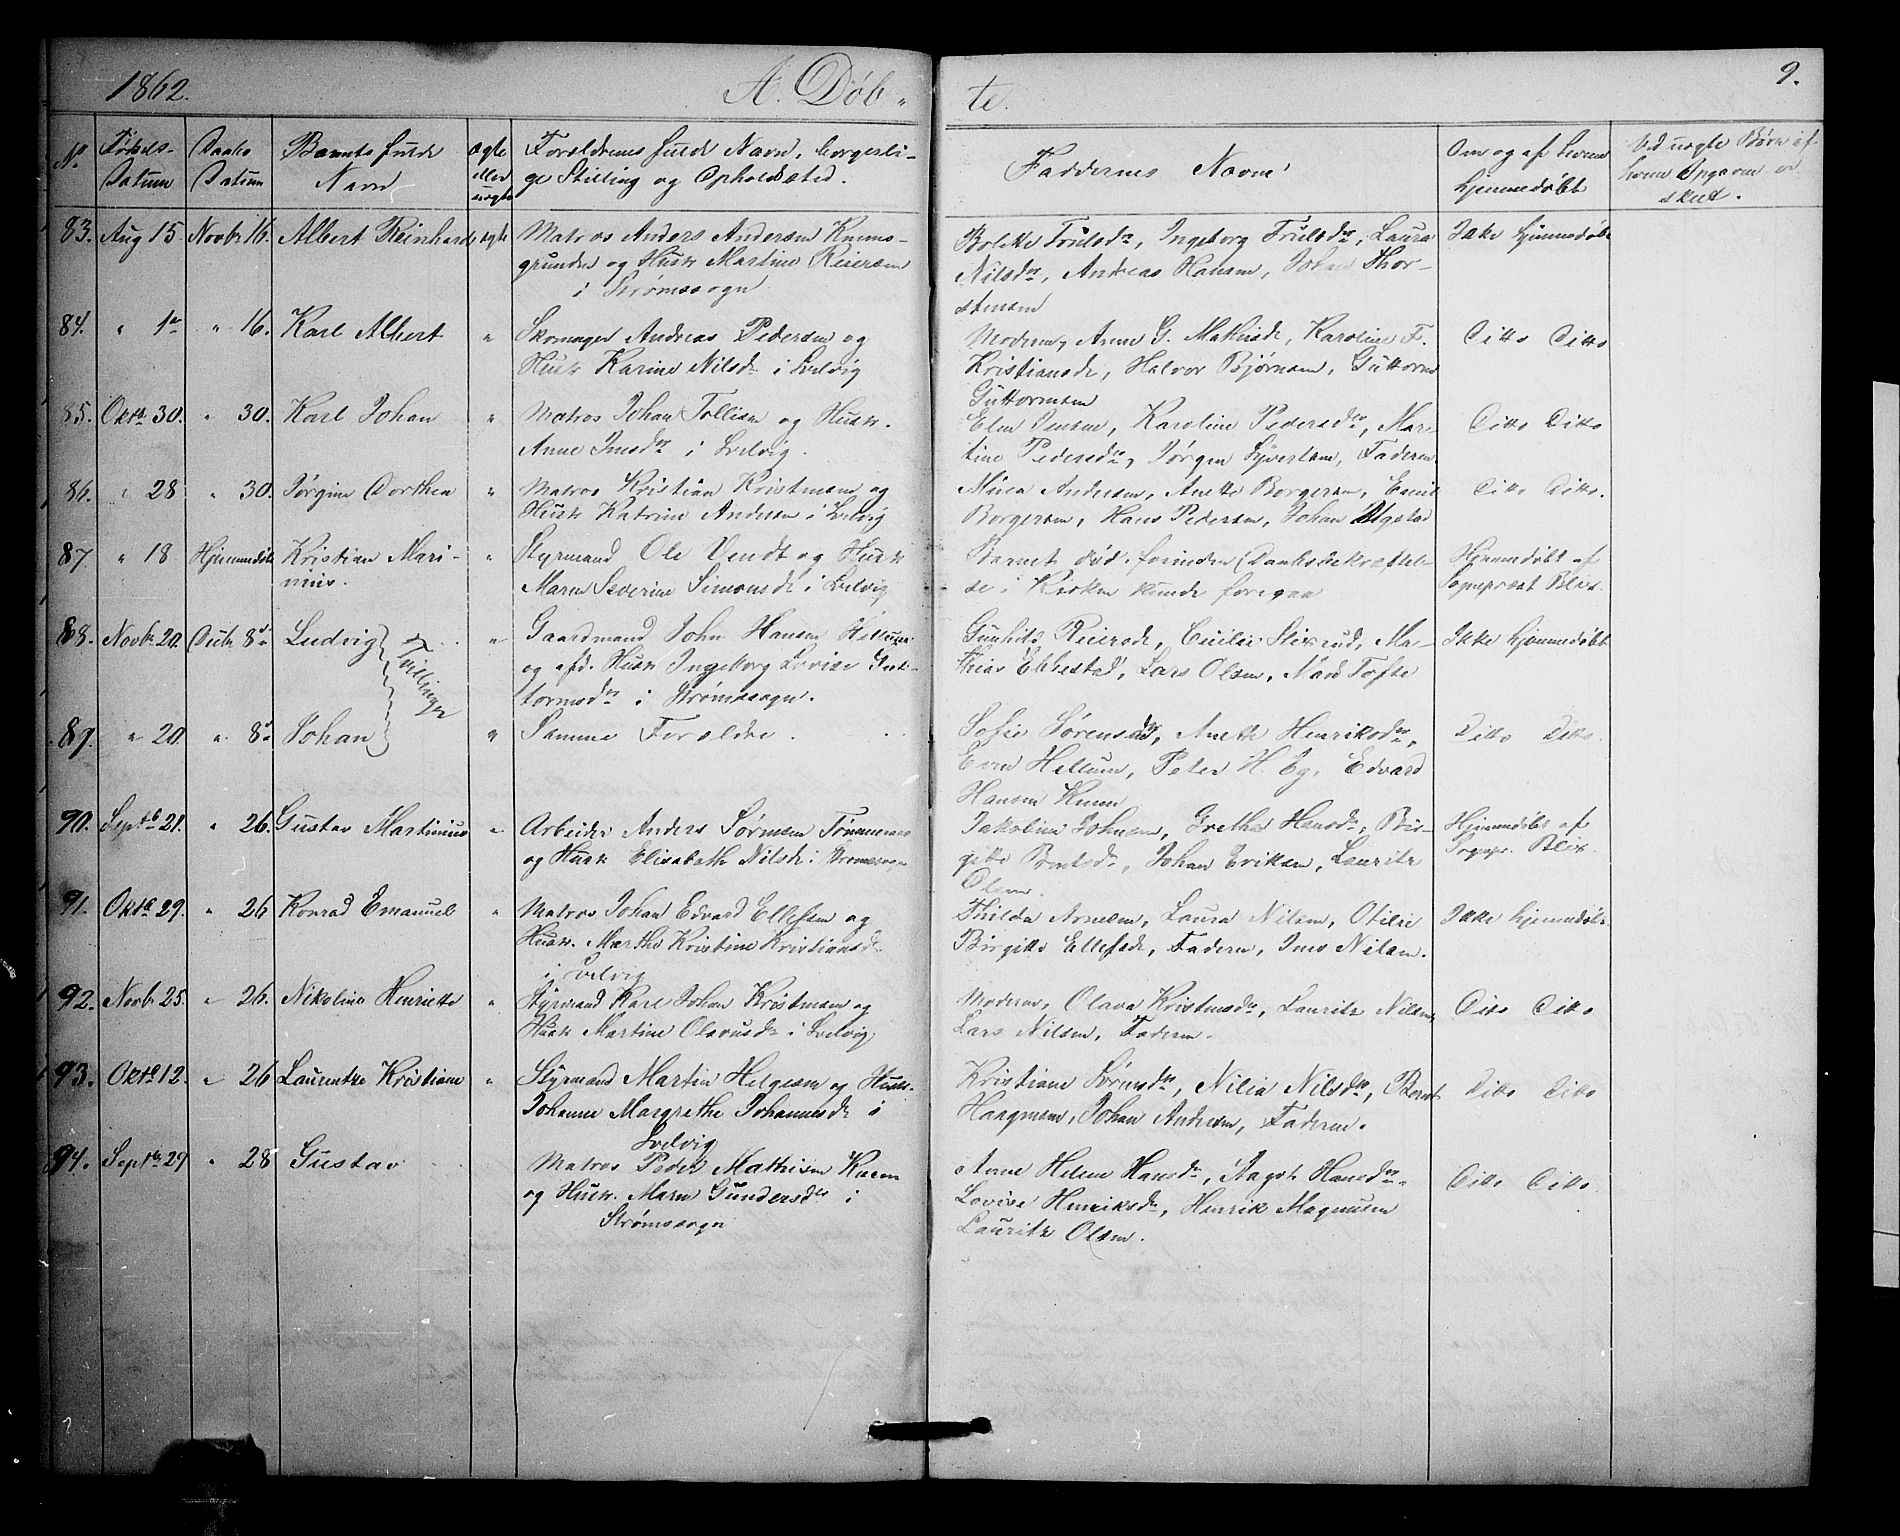 1862. A. Døb-
te. 9.
No
Fødsels-
Datum
Daabs
Datum
Barnets fulde
Navn
ægte
eller
uægte
Forældrenes fulde Navn, borgerli-
ge Stilling og Opholdssted.
Faddernes Navne
Om og af hvem
hjemmedøbt
Ved uægte Børn af
hvem Angaven er
skeet.
83. Aug 15 Novbr 16. Albert Reinhard ægte Matros Anders Andersen Knems-
grunden og Hustr Martine Reiersen
i Strømssogn
Bolette Trulsdr, Ingeborg Trulsdr, Laura
Nilsdr, Andreas Hansen, Johan Thor-
stensen
Ikke hjemmedøbt
84. " 1e " 16. Karl Albert " Skomager Andreas Pedersen og
Hustr Karine Nilsdr i Svelvig
Moderen, Anne G. Mathisdr, Karoline F.
Kristiansdr, Halvor Bjørnsen, Guttorm
Guttormsen
Ditto Ditto
85. Oktb 30. " 30. Karl Johan " Matros Johan Tollisen og Hustr.
Anne Jensdr i Svelvig.
Elen Jensen, Karoline Pedersdr, Mar-
tine Pedersdr, Jørgen Syvertsen, Faderen.
Ditto Ditto
86. " 28 " 30. Jørgine Dorthea " Matros Kristian Kristensen og
Hustr Katrine Andersen i Svelvig
Maren Andersen, Anette Borgersen,
Borgersen, Hans Pedersen, Johan
Ditto Ditto.
87. " 18 Hjemmedøbt Kristian Mari-
nius. " Styrmand Ole Wendt og Hustr
Maren Severine Simonsdr i Svelvig
Barnet død forinden Daabsbekræftel-
se i Kirken kunde foregaa
Hjemmedøbt af
Sognepræst Blix.
88. Novbr 20. Decbr 8de Ludvig } Tvillinger " Gaardmand John Hansen Hellum
og afd. Hustr Ingeborg Lovise Gut-
tormsdr i Strømssogn.
Gunhild Reiersdr, Cecilie Stixrud, Ma-
thias Ebbestad, Lars Olsen, Mads Tofte
Ikke hjemmedøbt
89. " 20. " 8de Johan } " Samme Forældre.
Sofie Sørensdr, Anette Henriksdr,
Even Hellum, Peter H. Eg, Edvard
Hansen Knem
Ditto Ditto.
90. Septb 21. " 26. Gustav Martinius " Arbeider Anders Sørensen Tømmeraas
og Hustr Elisabeth Nilsdr i Strømssogn
Jakobine Johnsen, Grethe Hansdr, Bir-
gitte Berntsdr, Johan Eriksen, Lauritz
Olsen.
Hjemmedøbt af
Sognepr. Blix.
91. Oktb 29. " 26 Konrad Emanuel " Matros Johan Edvard Ellefsen og
Hustr. Marthe Kristine Kristiansdr
i Svelvig
Thilda Arnesen, Laura Nilsen, Otilie
Birgitte Ellefsdr, Faderen, Jens Nilsen.
Ikke hjemmedøbt
92. Novbr 25. " 26. Nikoline Henriette " Styrmand Karl Johan Kristensen og
Hustr Martine Olavusdr i Svelvig
Moderen, Olava Kristensdr, Lauritz Nilsen,
Lars Nilsen, Faderen.
Ditto Ditto
93. Oktb 12. " 26 Laurentze Kristiane " Styrmand Martin Helgesen og Hustr.
Johanne Margrethe Johannesdr i
Svelvig
Kristiane Sørensdr, Nilia Nilsdr, Bernt
Haagensen, Johan Andersen, Faderen.
Ditto Ditto
94. Septbr 29 " 28 Gustav Matros Peder Mathisen Knem
og Hustr. Maren Gundersdr i
Strømssogn
Anne Helene Hansdr, Aagot Hansdr,
Lovise Henriksdr, Henrik Magnusen
Lauritz Olsen.
Ditto Ditto.